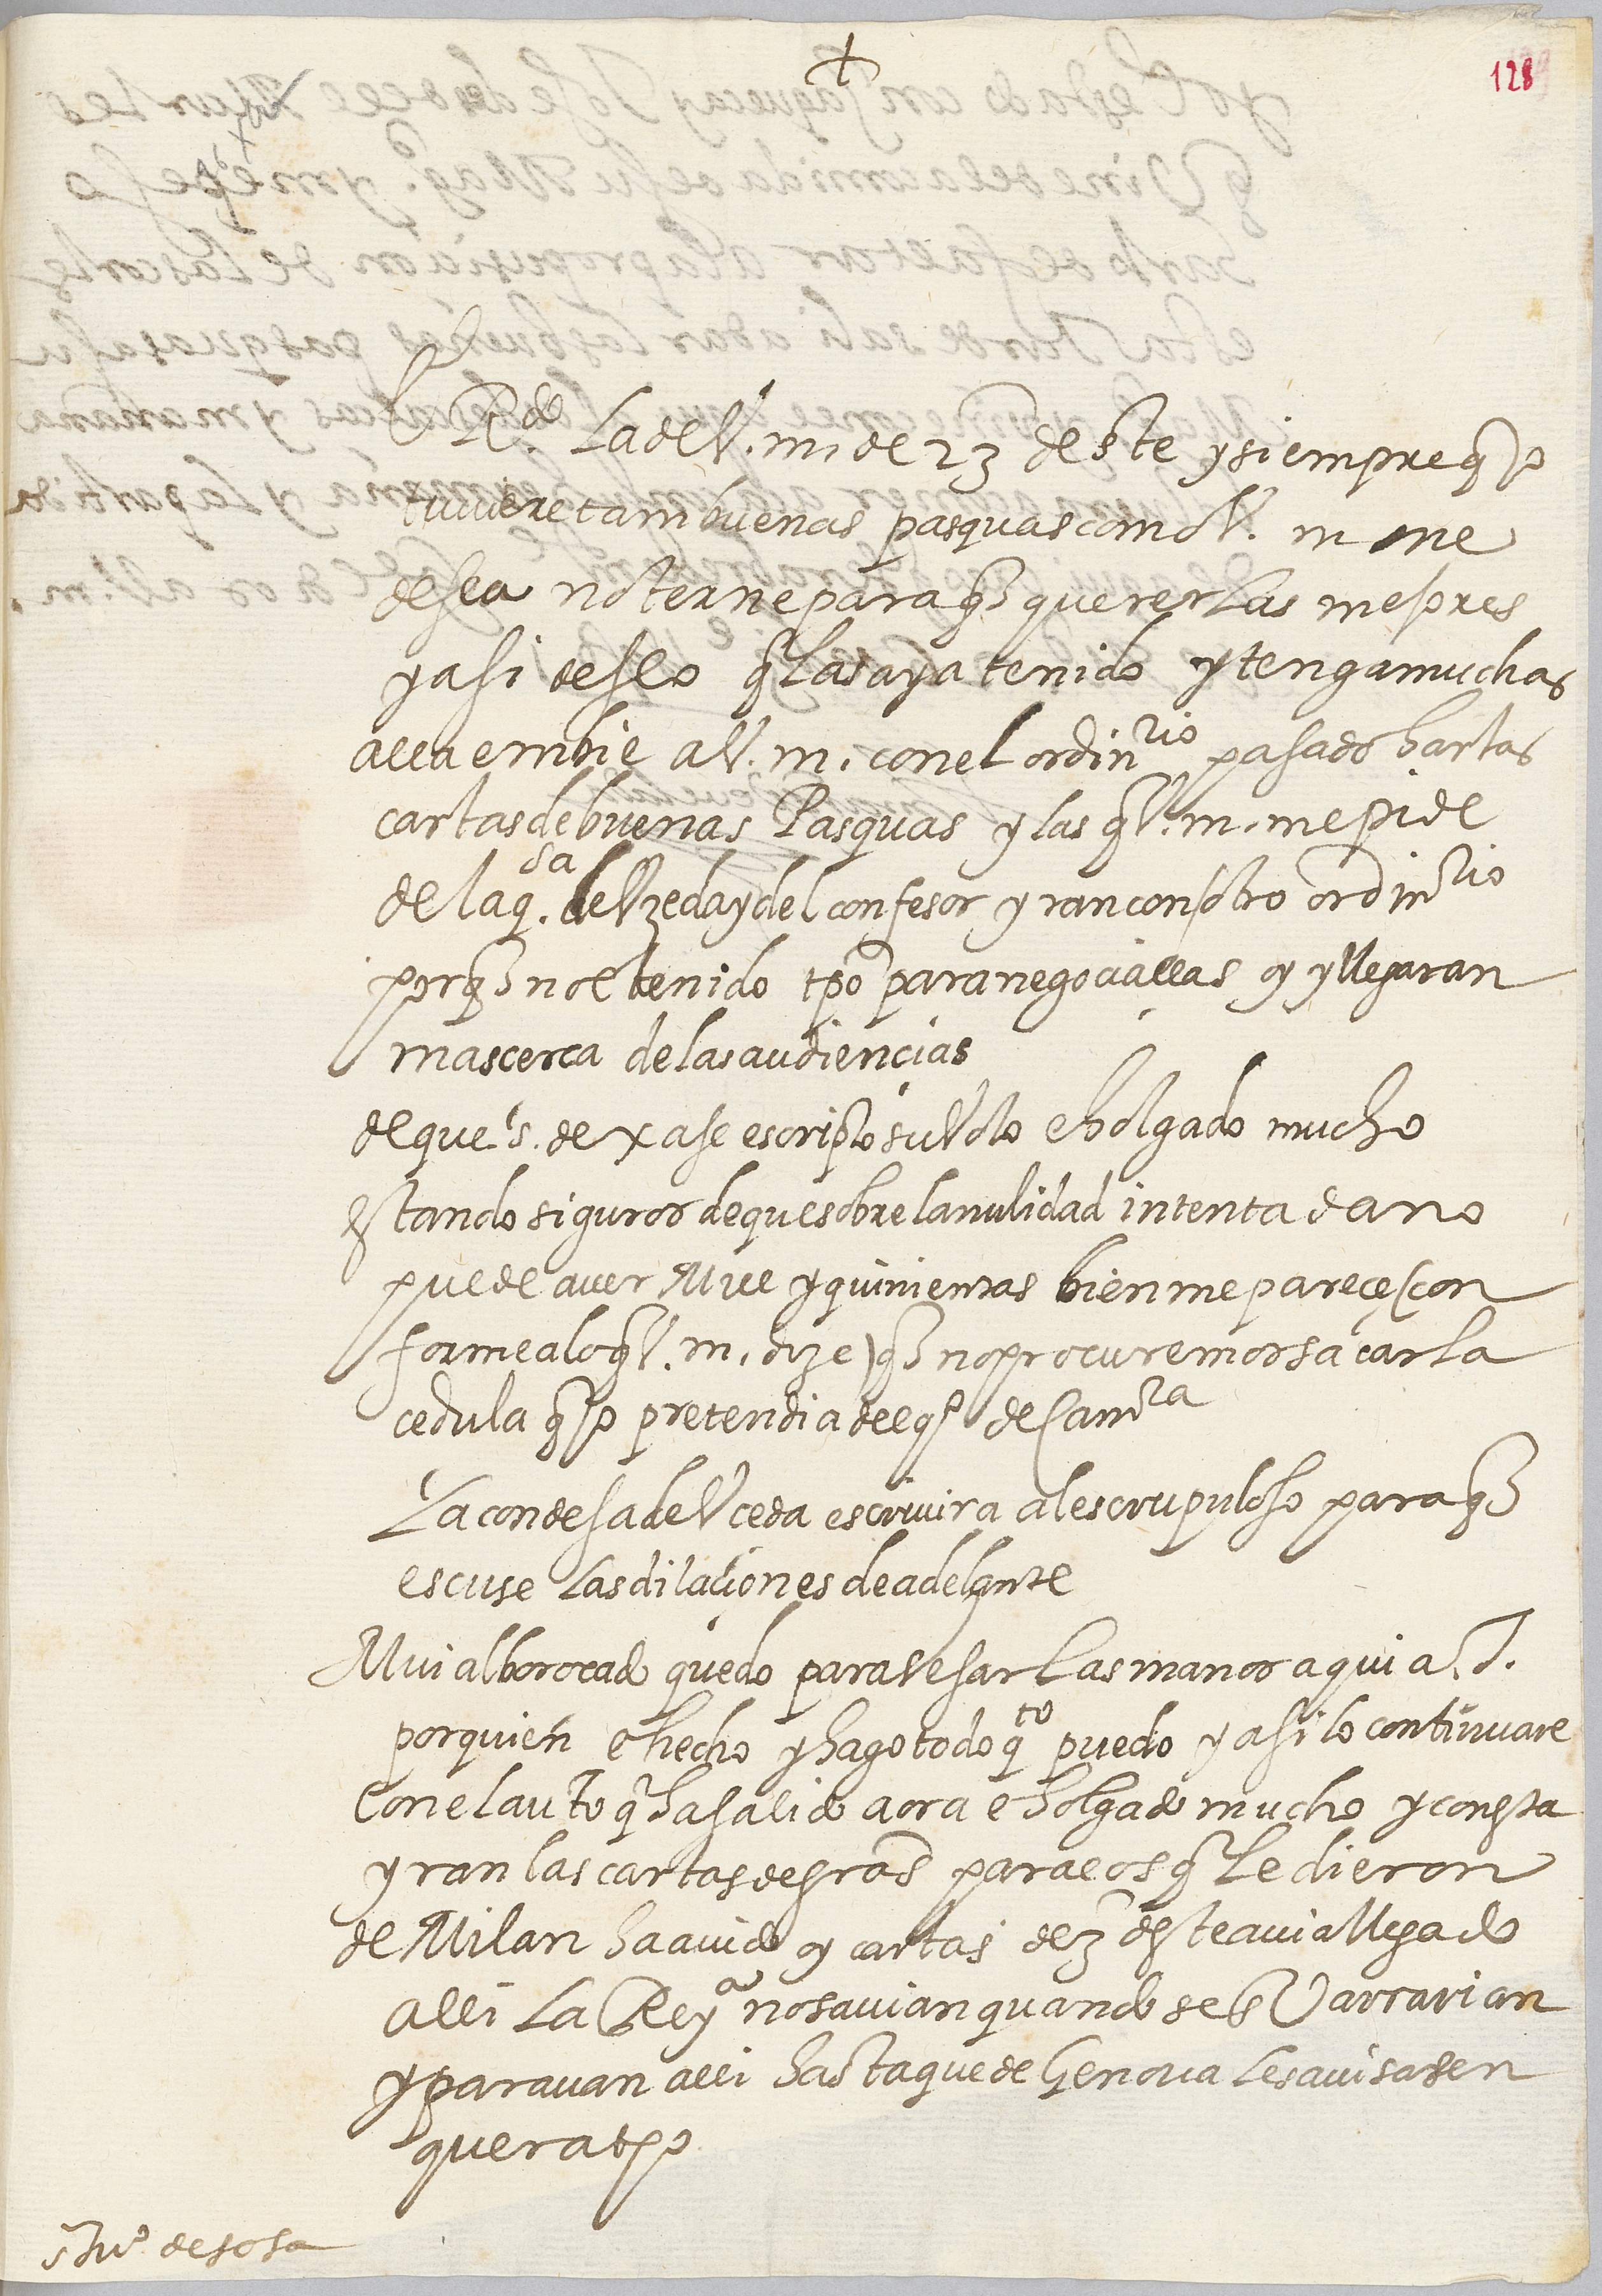 128
Rdo. La de V. m. de 23 deste y siempre q yo
tuuiere tam buenas pasquas como V. m me
desea no terne para q querer las mejores
y asi deseo q Las aya tenido y tenga muchas
alla embie a V. m. con el ordinrio pasado hartas
cartas de buenas Pasquas y las q V. m. me pide
de la q.sa de Vzeda y del confesor yran con otro ordinrio
porq no e tenido tpo para negociallas oy y llegaran
mas cerca de las audiencias
de que s. dexase escripto su Voto e holgado mucho
estando siguros de que sobre la nulidad intentada no
puede auer Mill y quinientas bien me parece (con
forme a lo q V. m. dize) q no procuremos sacar La
cedula q yo pretendia del qo de Camra
La condesa de Vceda escriuira al escrupuloso para q
escuse Las dilaciones de adelante
Mui alborocado quedo para Vesar Las manos aqui a. J.
por quien e hecho y hago todo qto puedo y asi lo continuare
Con el auto q ha salido aora e holgado mucho y con esta
yran las cartas de gras para los q Le dieron
de Milan ha auido oy cartas de 3 deste auia llegado
alli La Reya no sauian quando se enVarcarian
y parauan alli hasta que de Genoua Les auisasen
que era tpo
Ju° de sosa